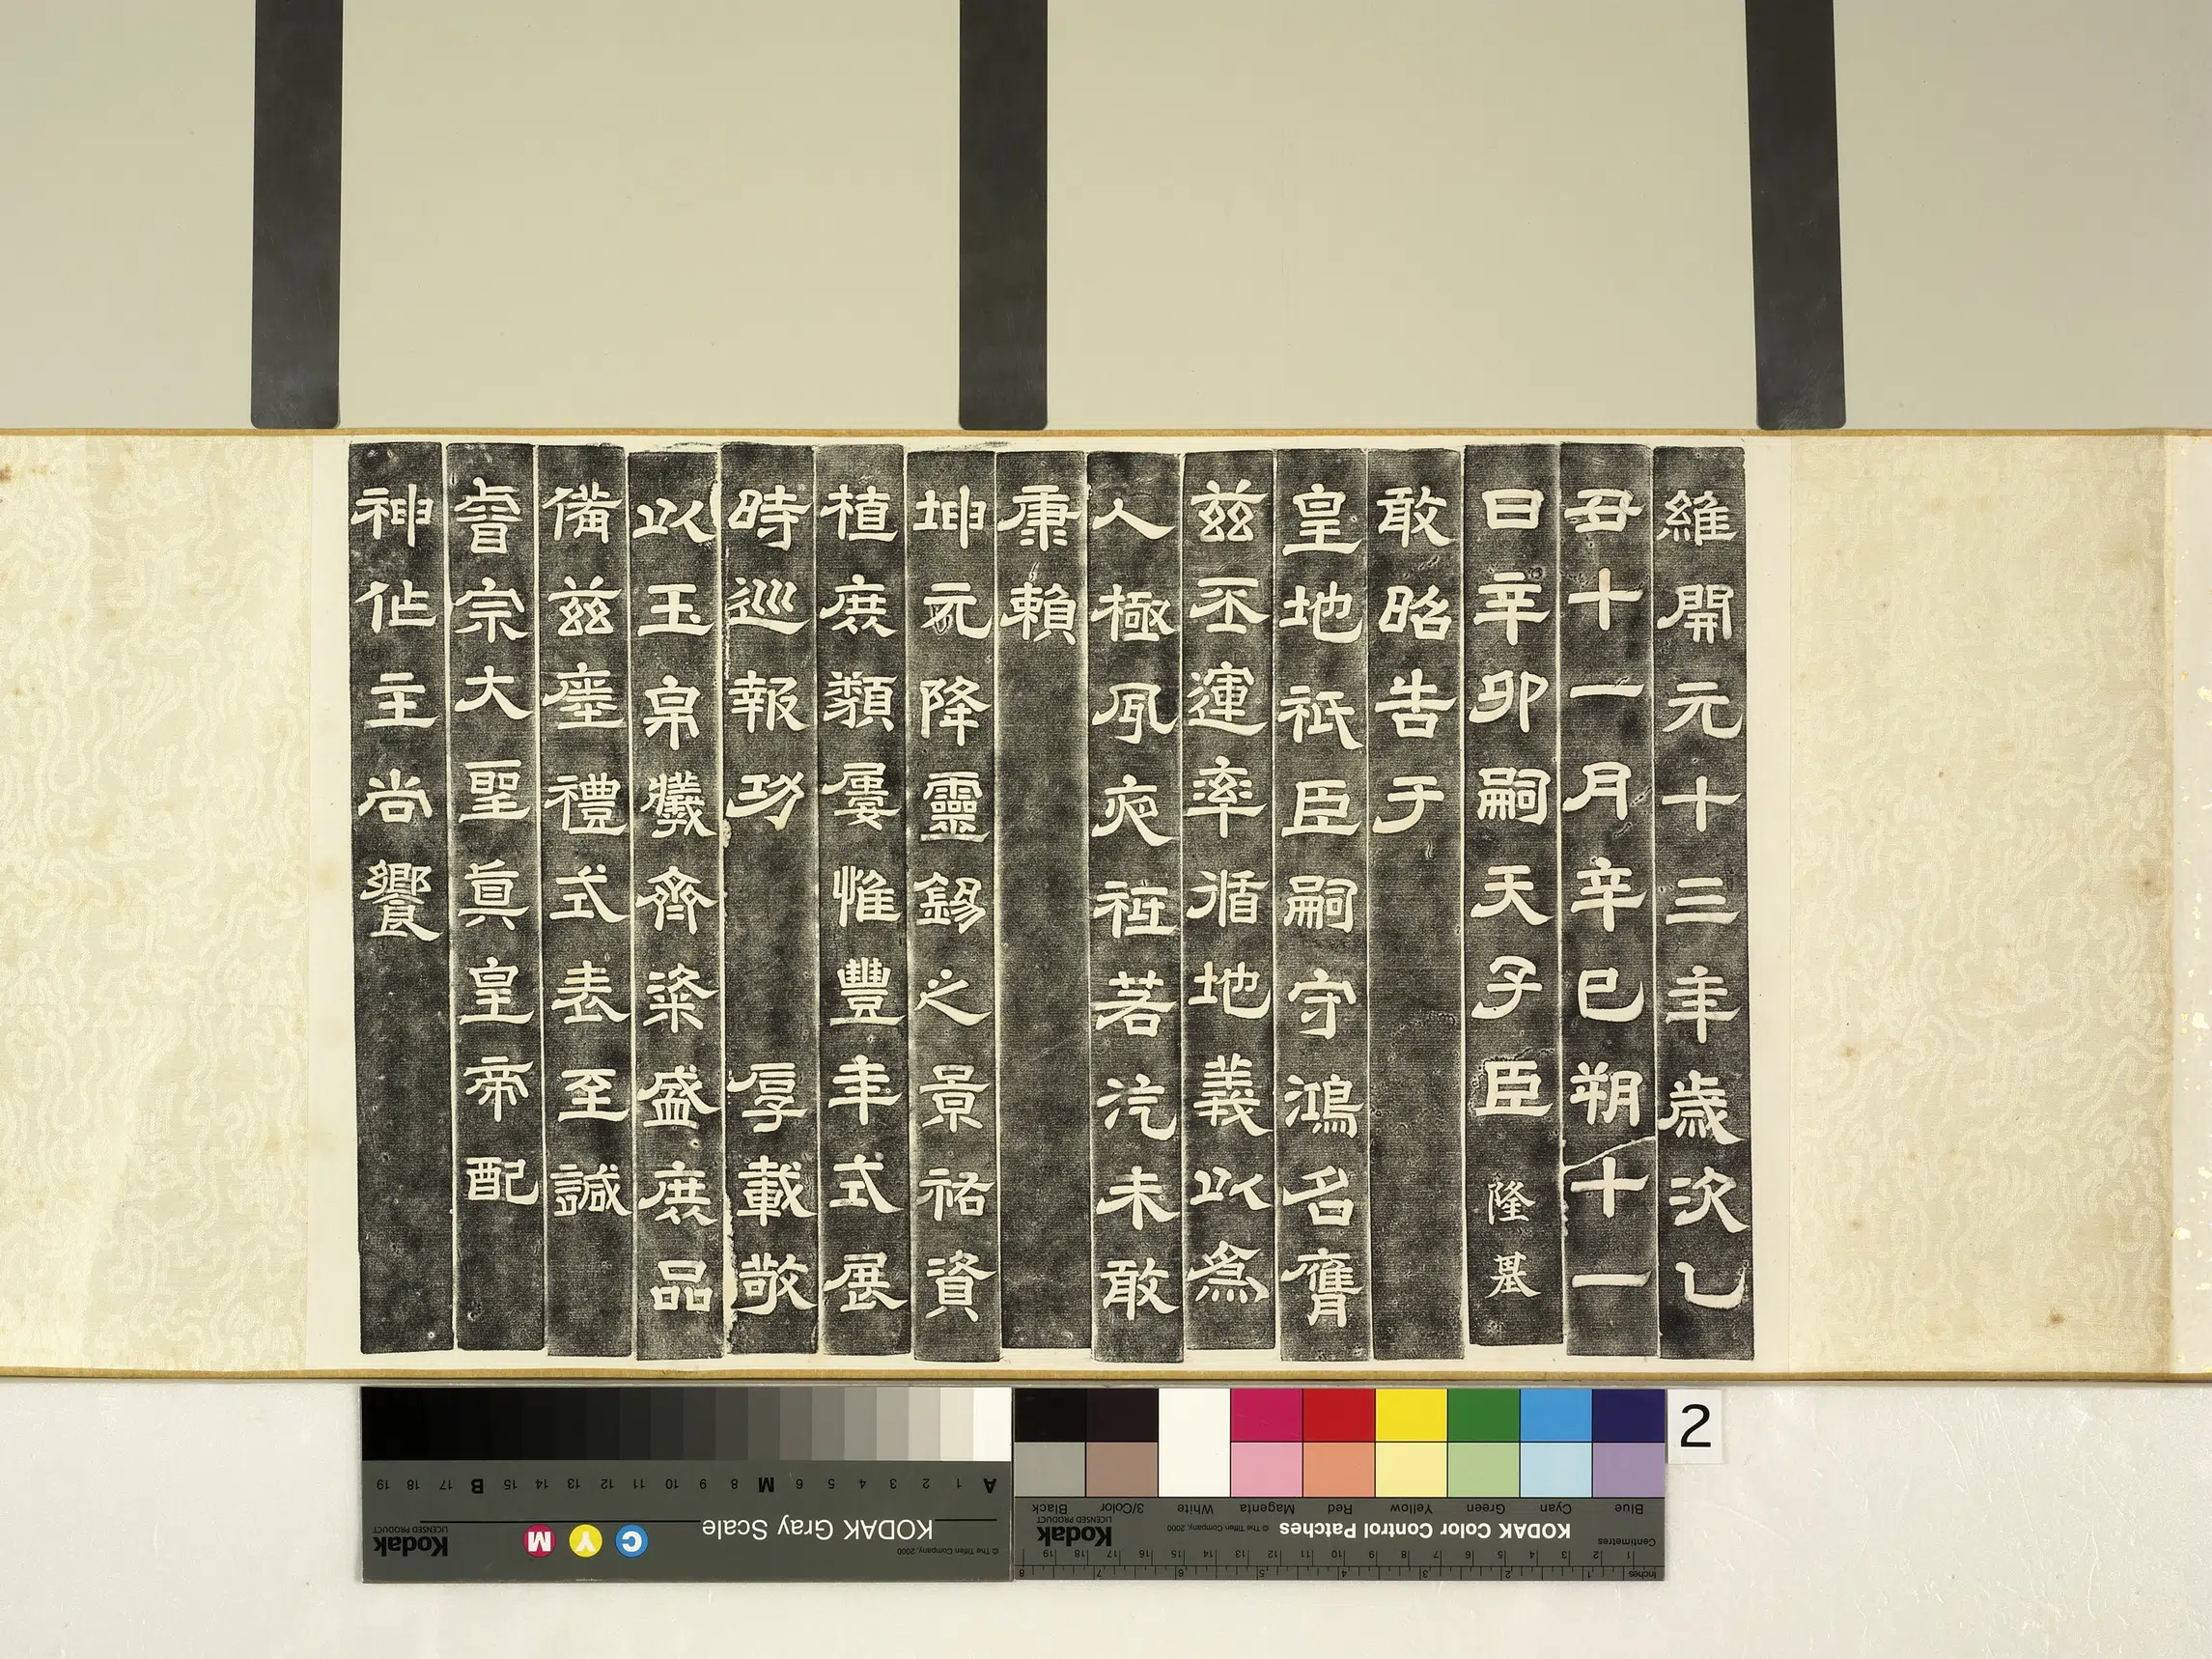 維開元十三年歲次乙
丑十一月辛巳朔十一
日辛卯嗣天子臣隆基
敢昭告于
皇地祇臣嗣守鴻名膺
茲丕運率循地義以為
人極夙夜祗若汔未敢
康賴
坤元降靈錫之景祐資
植庶類屢惟豐年式展
時巡報功厚載敬
以玉帛犧齊粢盛庶品
備茲瘞禮式表至諴
睿宗大聖真皇帝配
神作主尚饗
2
KODAK Gray Scale
A 1 2 3 4 5 6 M 8 9 10 11 12 13 14 15 B 17 18 19
C Y M
Kodak
LICENSED PRODUCT
© The Tiffen Company, 2000
KODAK Color Control Patches
© The Tiffen Company, 2000
Kodak
LICENSED PRODUCT
Blue Cyan Green Yellow Red Magenta White 3/Color Black
Centimetres 1 2 3 4 5 6 7 8 9 10 11 12 13 14 15 16 17 18 19
Inches 1 2 3 4 5 6 7 8